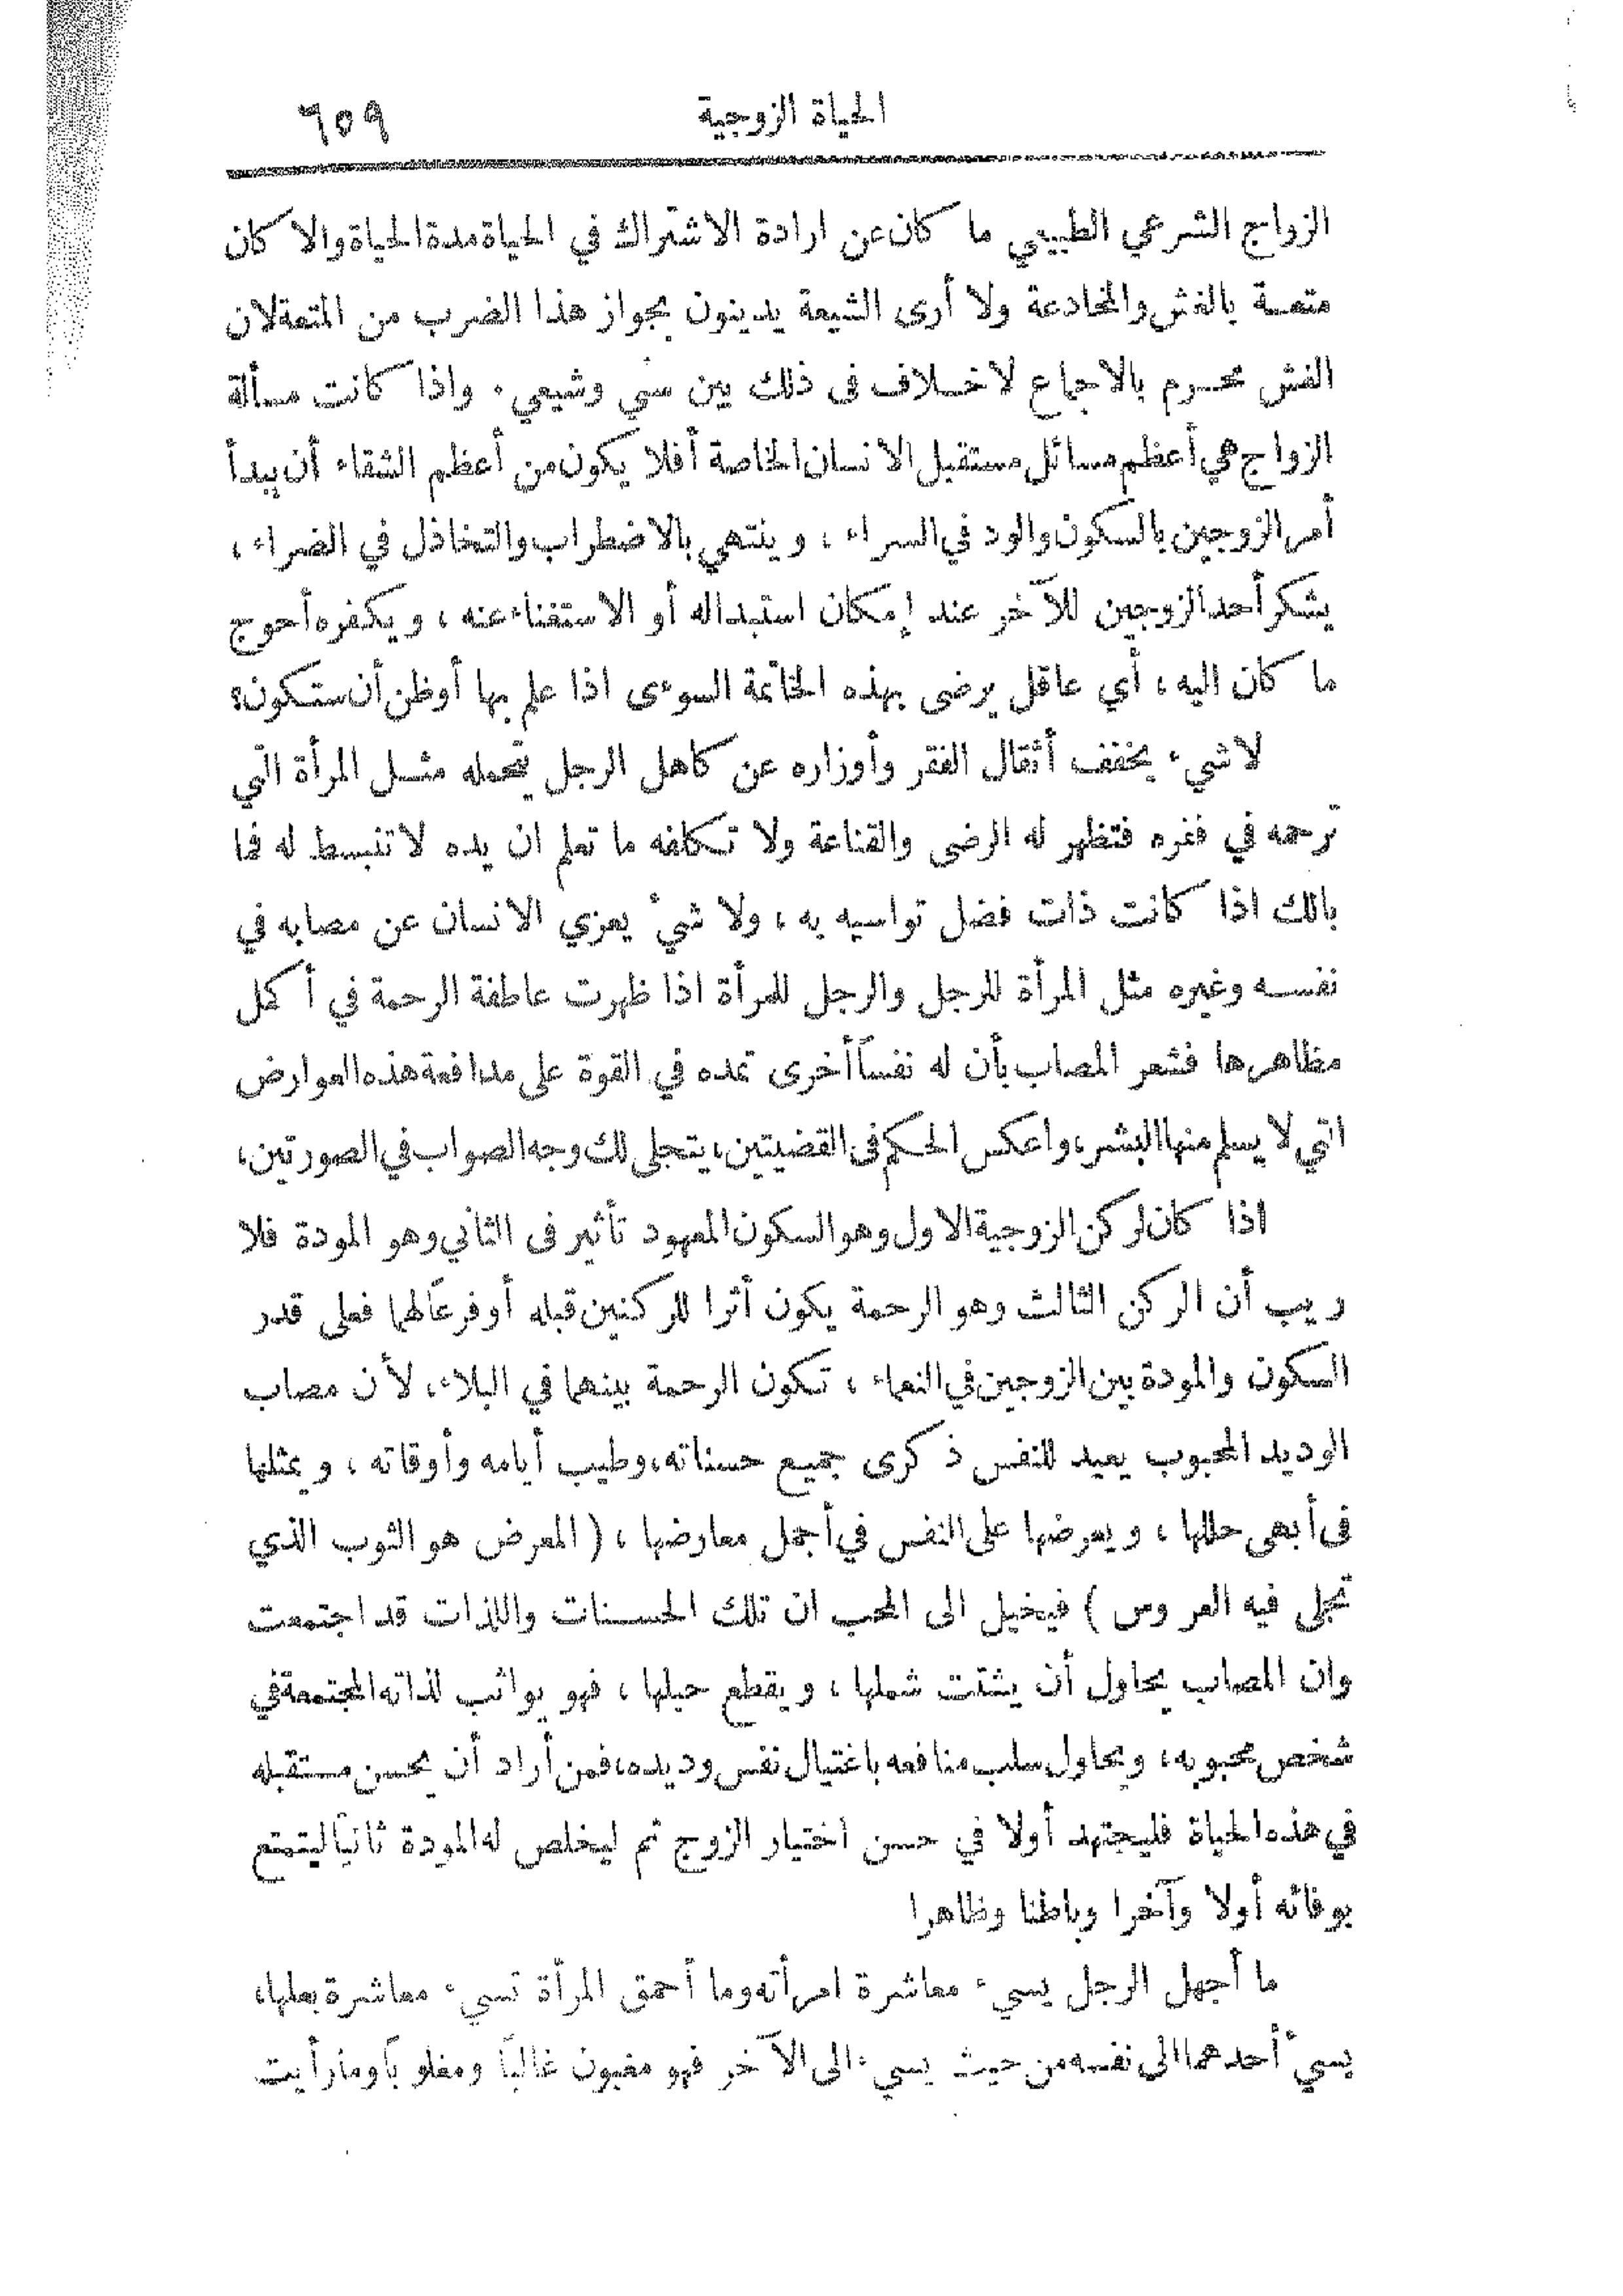 الحياة الزوجية ٦٥٩
الزواج الشرعي الطبيعي ما كان عن ارادة الاشتراك في الحياة مدة الحياة والا كان
متعة بالغش والمخادعة ولا أرى الشيعة يدينون بجواز هذا الضرب من المتعة لان
الغش محرم بالاجماع لا خلاف فى ذلك بين سني وشيعي . واذا كانت مسألة
الزواج هي أعظم مسائل مستقبل الانسان الخاصة أفلا يكون من أعظم الشقاء أن يبدأ
أمر الزوجين بالسكون والود في السراء ، وينتهي بالاضطراب والتخاذل في الضراء ،
يشكر أحد الزوجين للآخر عند إمكان استبداله أو الاستغناء عنه ، ويكفره أحوج
ما كان اليه ، أي عاقل يرضى بهذه الخاتمة السوءى اذا علم بها أو ظن أن ستكون؟
لا شيء يخفف أثقال الفقر وأوزاره عن كاهل الرجل تتحمله مثل المرأة التي
ترحمه في فقره فتظهر له الرضى والقناعة ولا تكلفه ما تعلم ان يده لا تنبسط له فما
بالك اذا كانت ذات فضل تواسيه به ، ولا شيء يعزي الانسان عن مصابه في
نفسه وغيره مثل المرأة للرجل والرجل للمرأة اذا ظهرت عاطفة الرحمة في أكمل
مظاهرها فشعر المصاب بأن له نفساً أخرى تمده في القوة على مدافعة هذه العوارض
التي لا يسلم منها البشر، واعكس الحكم فى القضيتين، يتجلى لك وجه الصواب في الصورتين،
اذا كان لركن الزوجية الاول وهو السكون المعهود تأثير فى الثاني وهو المودة فلا
ريب أن الركن الثالث وهو الرحمة يكون أثرا للركنين قبله أو فرعاً لهما فعلى قدر
السكون والمودة بين الزوجين في النعماء ، تكون الرحمة بينهما في البلاء، لأن مصاب
الوديد المحبوب يعيد للنفس ذكرى جميع حسناته، وطيب أيامه وأوقاته ، ويمثلها
فى أبهى حللها ، ويعرضها على النفس في أجمل معارضها ، ( المعرض هو الثوب الذي
تجلى فيه العروس ) فيخيل الى المحب ان تلك الحسنات واللذات قد اجتمعت
وان المصاب يحاول أن يشتت شملها ، ويقطع حبلها ، فهو يواثب لذاته المجتمعة في
شخص محبوبه، ويحاول سلب منافعه باغتيال نفس وديده، فمن أراد أن يحسن مستقبله
في هذه الحياة فليجتهد أولا في حسن اختيار الزوج ثم ليخلص له المودة ثانياً ليتمتع
بوفائه أولا وآخرا وباطنا وظاهرا
ما أجهل الرجل يسيء معاشرة امرأته وما أحمق المرأة تسيء معاشرة بعلها،
يسيء أحدهما الى نفسه من حيث يسيء الى الآخر فهو مغبون غالباً ومغلوباً وما رأيت